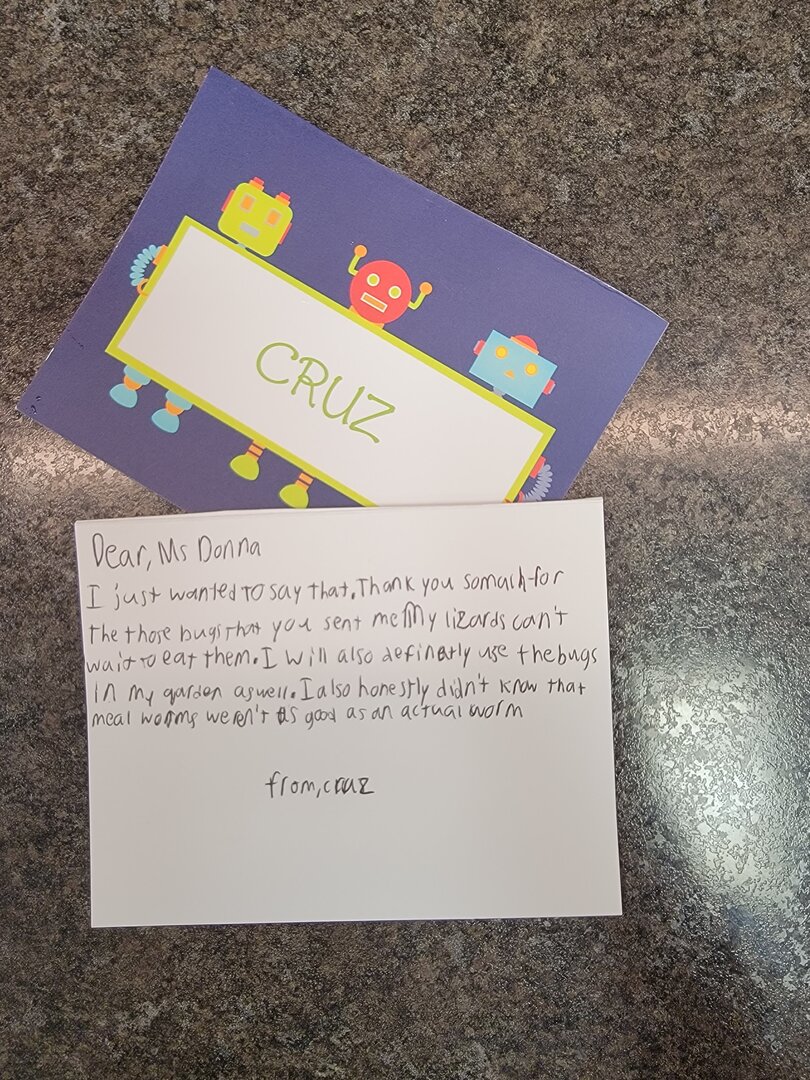 CRUZ
Dear, Ms Donna
I just wanted to say that, Thank you somach for
the those bugs that you sent me My lizards can't
wait to eat them. I will also definatly use the bugs
in my garden aswell. I also honestly didn't know that
meal worms weren't as good as an actual worm
from, cruz